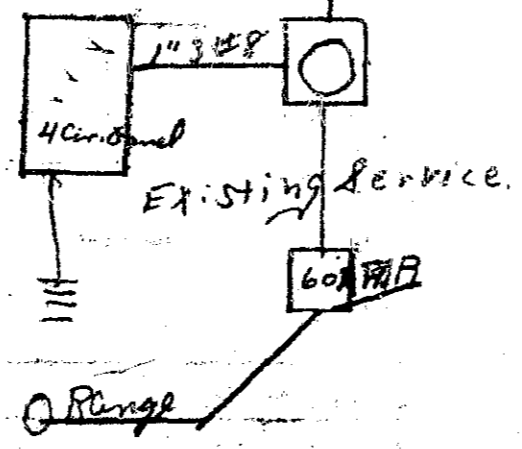 1" 3 #8
4 Cir. Panel
Existing Service.
60A
Range